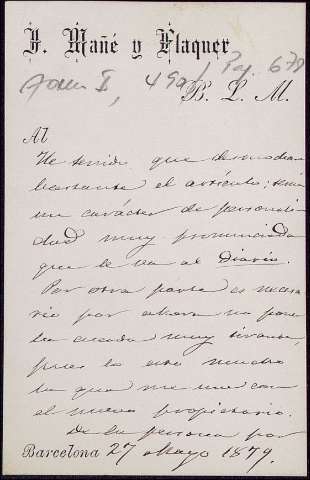 J. Mañé y Flaquer
Tom II, 490/, Pg. 679
B. L. M.
Al
He tenido que desmochar
bastante el artículo; tenía
un carácter de personali-
dad muy pronunciada
que le va al Diario.
Por otra parte es necesa
rio por ahora no poner
la cuerda muy tirante,
pues la esto mucho
la que me une con
el nuevo propietario.
De la persona por
Barcelona 27 Mayo 1879.